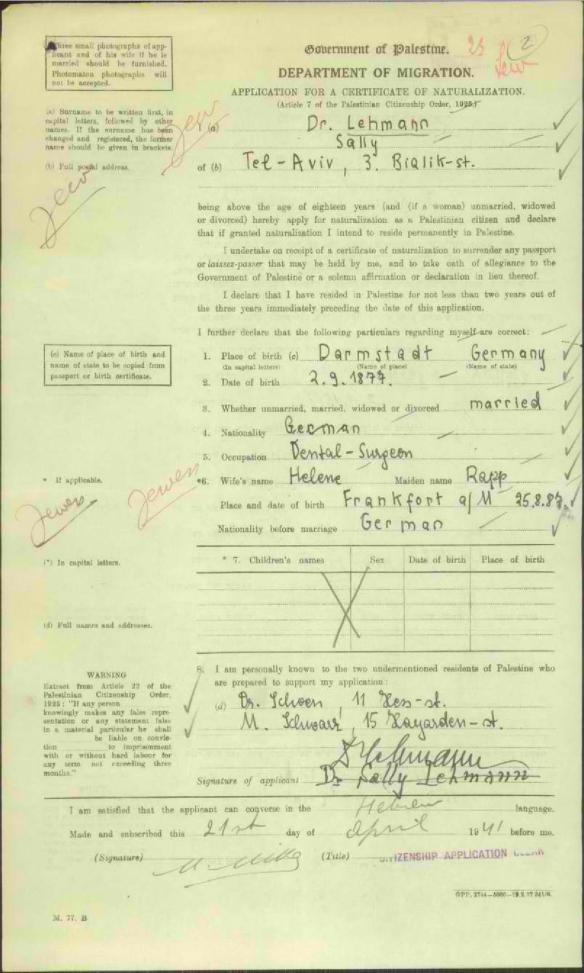 Three small photographs of app-
licant and of his wife if he is
married should be furnished.
Photomaton photographs will
not be accepted.
Government of Palestine.
23
2
Jew
DEPARTMENT OF MIGRATION.
APPLICATION FOR A CERTIFICATE OF NATURALIZATION.
(Article 7 of the Palestinian Citizenship Order, 1925)
(a) Surname to be written first, in
capital letters, followed by other
names. If the surname has been
changed and registered, the former
name should be given in brackets.
Jew
I (a) Dr. Lehmann
Sally
(b) Full postal address.
of (b) Tel-Aviv, 3 Bialik-st.
Jew
being above the age of eighteen years (and (if a woman) unmarried, widowed
or divorced) hereby apply for naturalization as a Palestinian citizen and declare
that if granted naturalization I intend to reside permanently in Palestine.
I undertake on receipt of a certificate of naturalization to surrender any passport
or laissez-passer that may be held by me, and to take oath of allegiance to the
Government of Palestine or a solemn affirmation or declaration in lieu thereof.
I declare that I have resided in Palestine for not less than two years out of
the three years immediately preceding the date of this application.
I further declare that the following particulars regarding myself are correct:
(c) Name of place of birth and
name of state to be copied from
passport or birth certificate.
1. Place of birth (c) Darmstadt Germany
(In capital letters) (Name of place) (Name of state)
2. Date of birth 2.9.1877.
3. Whether unmarried, married, widowed or divorced married
4. Nationality German
5. Occupation Dental-Surgeon
* If applicable.
*6. Wife's name Helene Maiden name Rapp
Jewess
Jewess
Place and date of birth Frankfort a/M 25.8.87.
Nationality before marriage German
(*) In capital letters.
* 7. Children's names Sex Date of birth Place of birth
(d) Full names and addresses.
8. I am personally known to the two undermentioned residents of Palestine who
are prepared to support my application:
WARNING
Extract from Article 22 of the
Palestinian Citizenship Order,
1925: "If any person
knowingly makes any false repre-
sentation or any statement false
in a material particular he shall
be liable on convic-
tion to imprisonment
with or without hard labour for
any term not exceeding three
months."
(d) Dr. Schoen, 11 Hess-st.
M. Schwarz, 15 Hayarden-st.
S Lehmann
Signature of applicant Dr Sally Lehmann
I am satisfied that the applicant can converse in the Hebrew language.
Made and subscribed this 21st day of April 1941 before me.
(Signature) (Title) CITIZENSHIP APPLICATION
M. 77. B